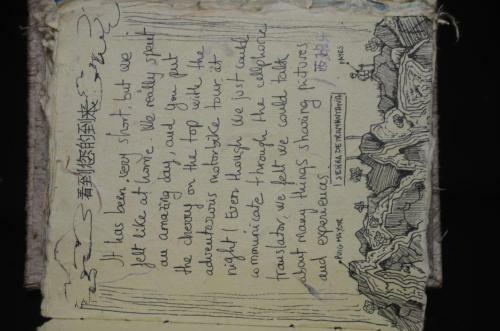 看到您的到来
It has been very short but we
felt like at home. We really spent
an amazing day, and you put
the cherry on the top with the
adventurous motorbike tour at
night! Even though we just could
communicate through the cellphone
translator, we felt we could talk
about many things sharing pictures
and experiences.
西班牙
SERRA DE TRAMUNTANA
PUIG MAJOR